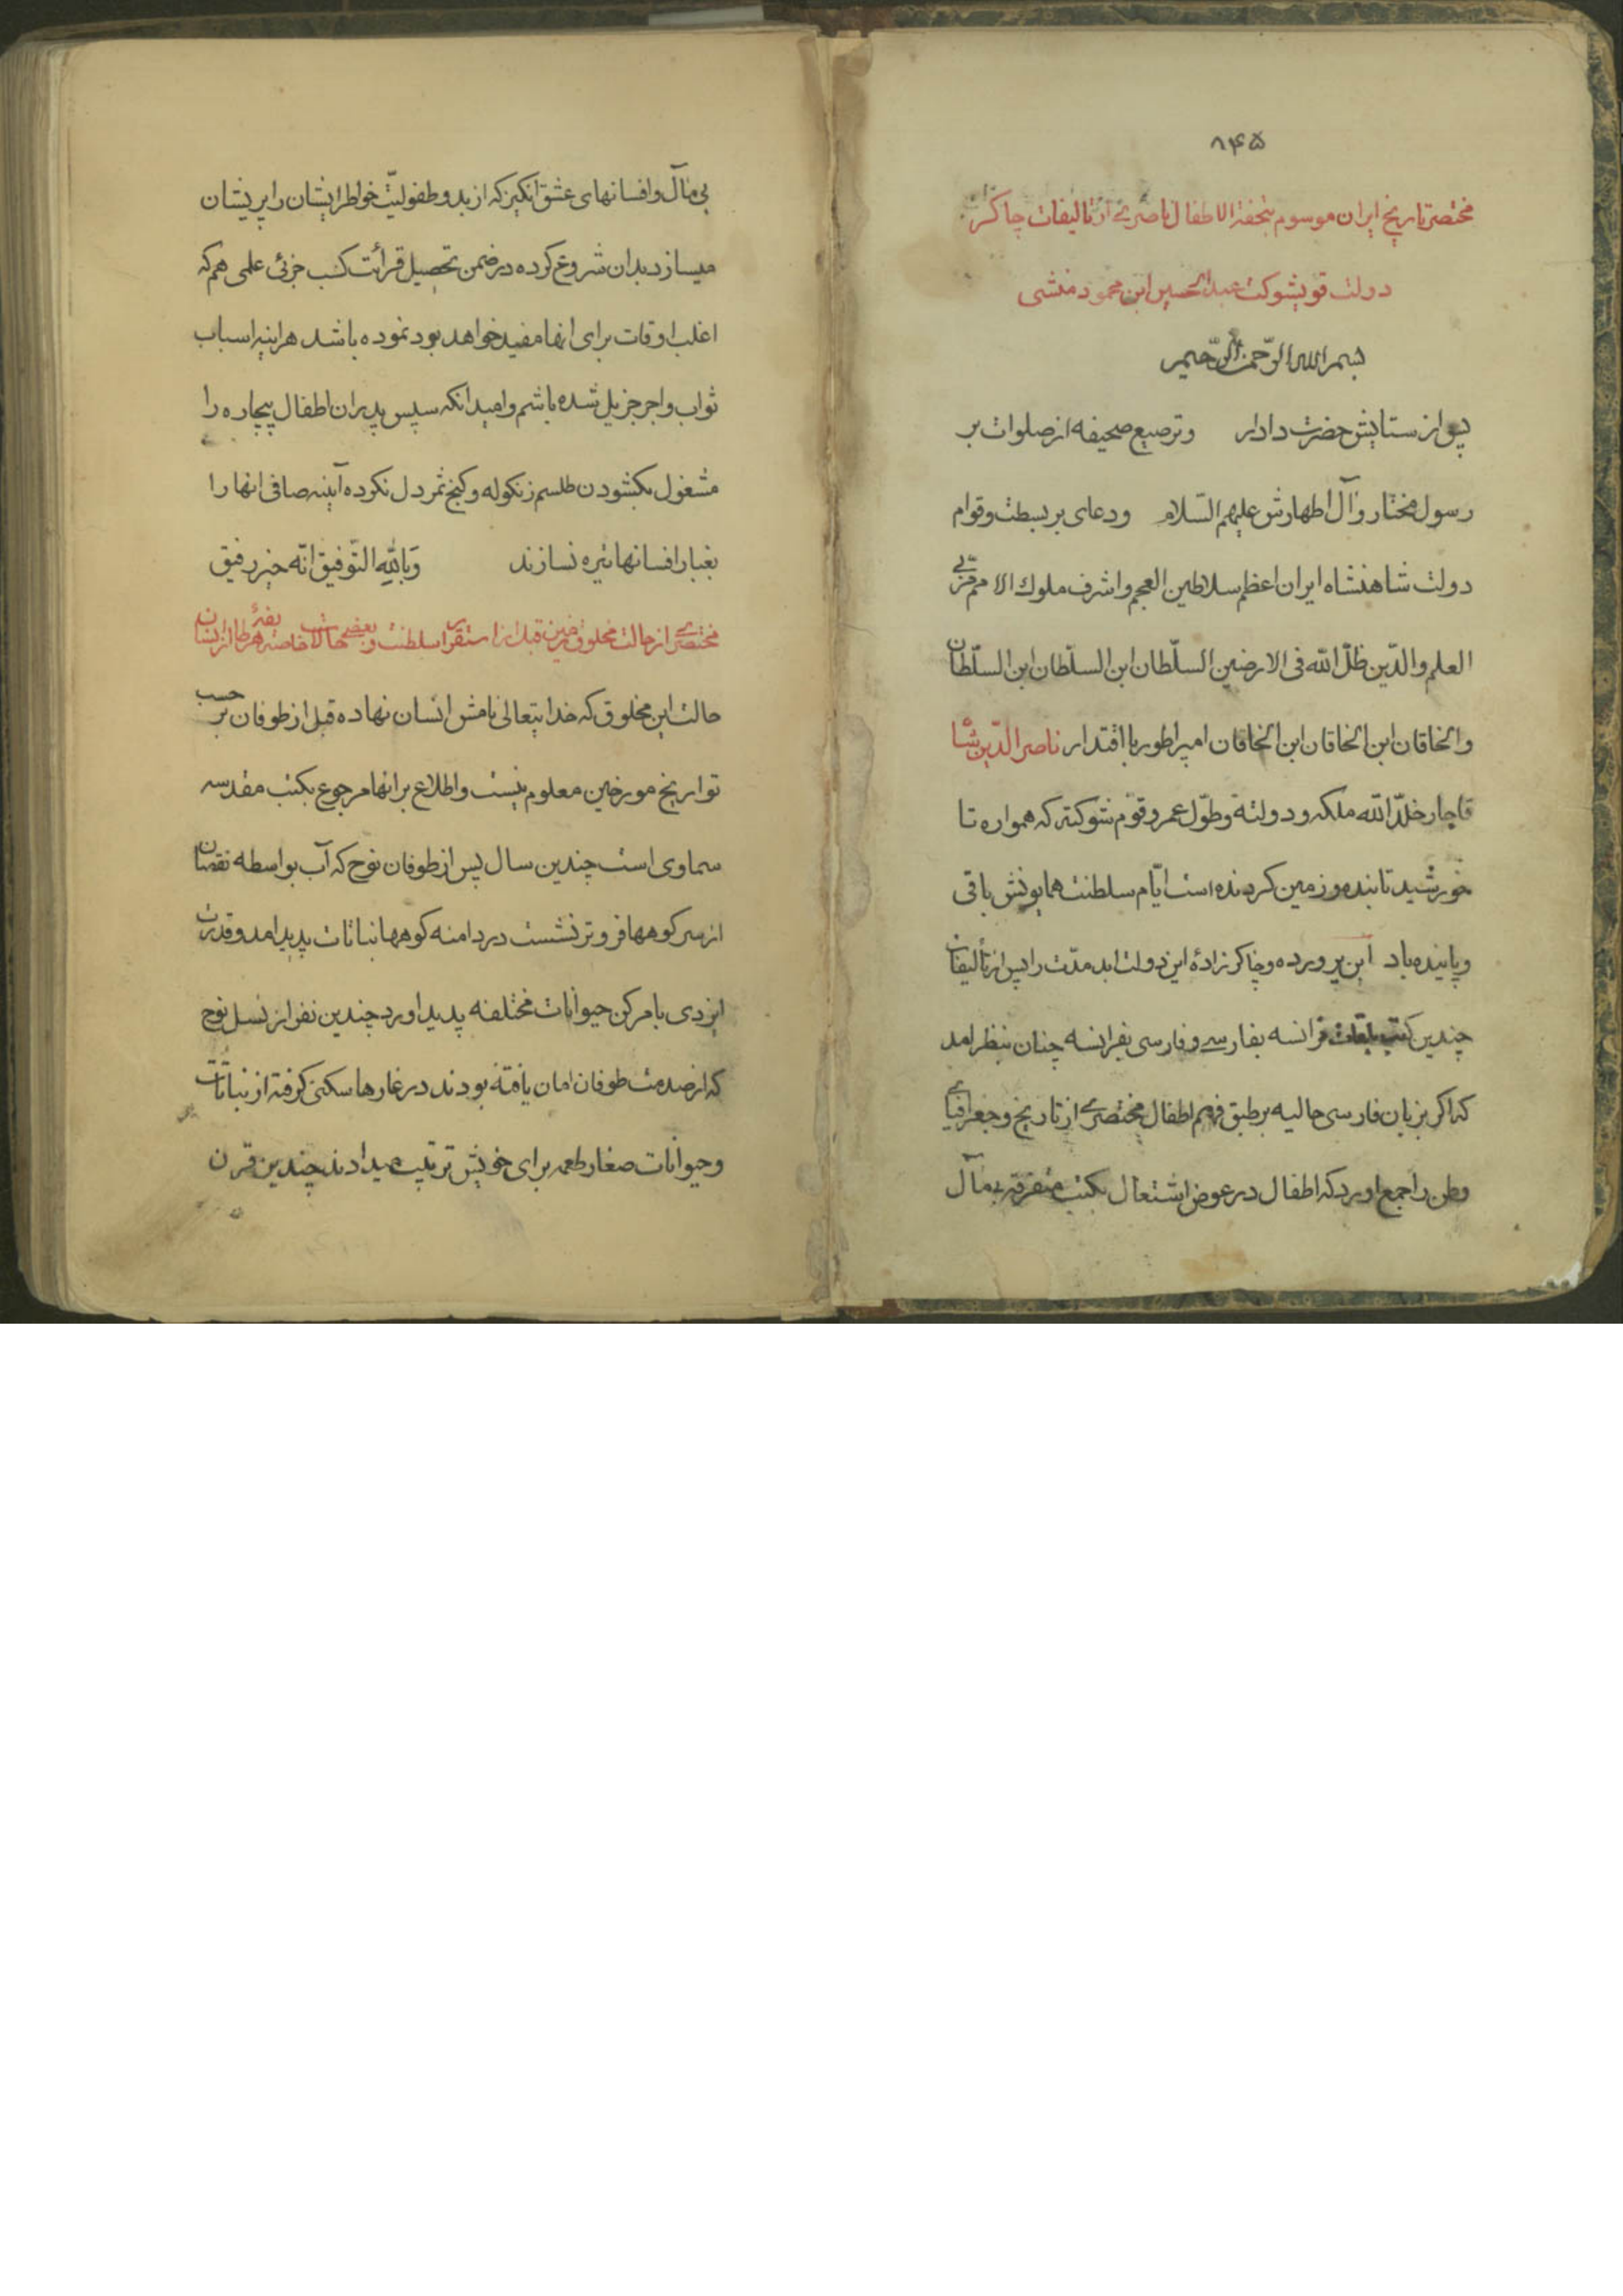 ۸۴۵
مختصر تاریخ ایران موسوم بتحفة الاطفال ناصری از تالیفات چاکر
دولت قویشوکت عبدالحسین ابن محمود منشی
بسم الله الرّحمن الرّحیم
پس از ستایش حضرت دادار و ترصیع صحیفه از صلوات بر
رسول مختار و آل اطهارش علیهم السّلام و دعای بر بسطت و قوام
دولت شاهنشاه ایران اعظم سلاطین العجم و اشرف ملوک الامم مربّی
العلم و الدّین ظلّ الله فی الارضین السلّطان ابن السلّطان ابن السلّطان
و الخاقان ابن الخاقان ابن الخاقان امپراطور با اقتدار ناصر الدّین شاه
قاجار خلدّ الله ملکه و دولته و طوّل عمره و قوّم شوکته که همواره تا
خورشید تابنده و زمین کردنده است ایّام سلطنت همایونش باقی
و پاینده باد این پرورده و چاکرزادهٔ این دولت ابد مدّت را پس از تألیفات
چندین کتب فرانسه بفارسے و فارسی بفرانسه چنان بنظر امد
که اکر بزبان فارسی حالیه بر طبق فهم اطفال مختصرے از تاریخ و جغرافیای
وطن را جمع اورد که اطفال در عوض اشتعال بکتب متفرقه بی‌مآل
بی مآل و افسانهای عشق انکیز که از بدو طفولیّت خواطر ایشان را پریشان
میسازد بدان شروع کرده در ضمن تحصیل قرائت کسب جزئی علمی هم که
اغلب اوقات برای انها مفید خواهد بود نموده باشد هراینه اسباب
ثواب و اجر جزیل شده باشم و امید انکه سپس پدران اطفال بیچاره را
مشغول بکشودن طلسم زنکوله و کنج ثمر دل نکرده آینه صافی انها را
بغبار افسانها تیره نسازند وَبالِلّهِ التّوفیق انّه خیر رفیق
مختصرے از حالت مخلوق زمین قبل از استقرار سلطنت و بعضے حالات خاصه هر طایفه از ایشان
حالت این مخلوق که خدایتعالی نامش انسان نهاده قبل از طوفان بر حسب
تواریخ مورخین معلوم نیست و اطلاع بر انها مرجوع بکتب مقدسه
سماوی است چندین سال پس از طوفان نوح که آب بواسطه نقصان
از سر کوهها فروتر نشست در دامنه کوهها نباتات پدید امد و قدرت
ایزدی بامر کن حیوانات مختلفه پدید اورد چندین نفر از نسل نوح
که از صدمت طوفان امان یافته بودند در غارها سکنی کرفته از نباتات
و حیوانات صغار طعمه برای خویش ترتیب میدادند چندین قرن